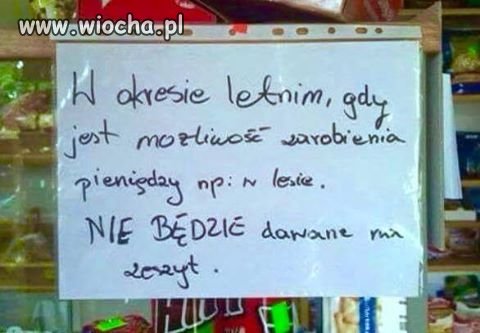 www.wiocha.pl
W okresie letnim, gdy
jest możliwość zarobienia
pieniędzy np: w lesie.
NIE BĘDZIE dawane na
zeszyt.